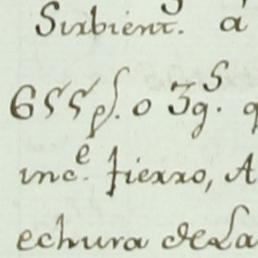 Sirbient.s á
655 ps. o 3gs. q
inc.e fierro, A
echura de La